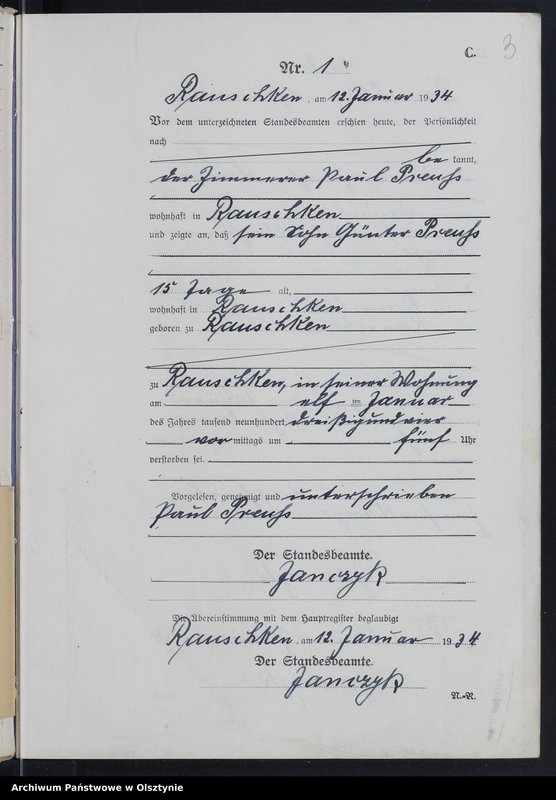 C.
3
Nr. 1
Rauschken, am 12. Januar 1934
Vor dem unterzeichneten Standesbeamten erschien heute, der Persönlichkeit
nach
be kannt,
der Zimmerer Paul Preuß
wohnhaft in Rauschken
und zeigte an, daß sein Sohn Günter Preuß
15 Tage alt,
wohnhaft in Rauschken
geboren zu Rauschken
zu Rauschken, in seiner Wohnung
am elf ten Januar
des Jahres tausend neunhundert dreißigundvier
vor mittags um fünf Uhr
verstorben sei.
Vorgelesen, genehmigt und unterschrieben
Paul Preuß
Der Standesbeamte.
Janczyk
Die Übereinstimmung mit dem Hauptregister beglaubigt
Rauschken, am 12. Januar 1934
Der Standesbeamte.
Janczyk
N.-R.
Archiwum Państwowe w Olsztynie